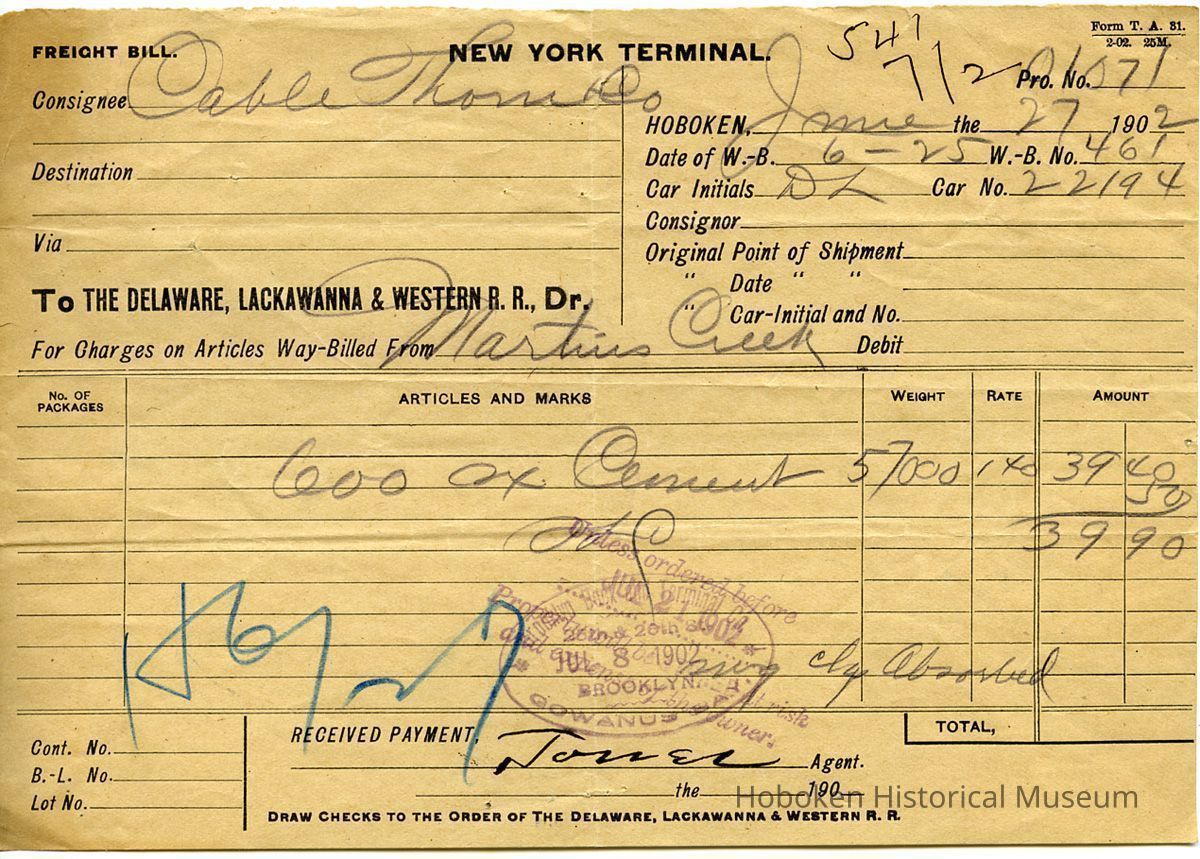 Form T. A. 31.
2-02. 25M.
FREIGHT BILL.
NEW YORK TERMINAL.
547
7/2
Pro. No. 01071
Consignee Cable Thorn Co
HOBOKEN, June the 27 1902
Date of W.-B. 6-25 W.-B. No. 461
Destination
Car Initials DL Car No. 22194
Consignor
Via
Original Point of Shipment
" Date " "
To THE DELAWARE, LACKAWANNA & WESTERN R. R., Dr.
" Car-Initial and No.
For Charges on Articles Way-Billed From Martins Creek Debit
No. OF PACKAGES ARTICLES AND MARKS WEIGHT RATE AMOUNT
600 Cement 57000 140 39 40
50
39 90
Unless ordered before
JUL 2 1902
Terminal Co
25th & 26th St
JUL 8 1902
BROOKLYN
GOWANUS
at risk
owner.
chg Absorbed
TOTAL,
RECEIVED PAYMENT,
Agent.
Cont. No.
B.-L. No.
Lot No.
the 190
DRAW CHECKS TO THE ORDER OF THE DELAWARE, LACKAWANNA & WESTERN R. R.
Hoboken Historical Museum